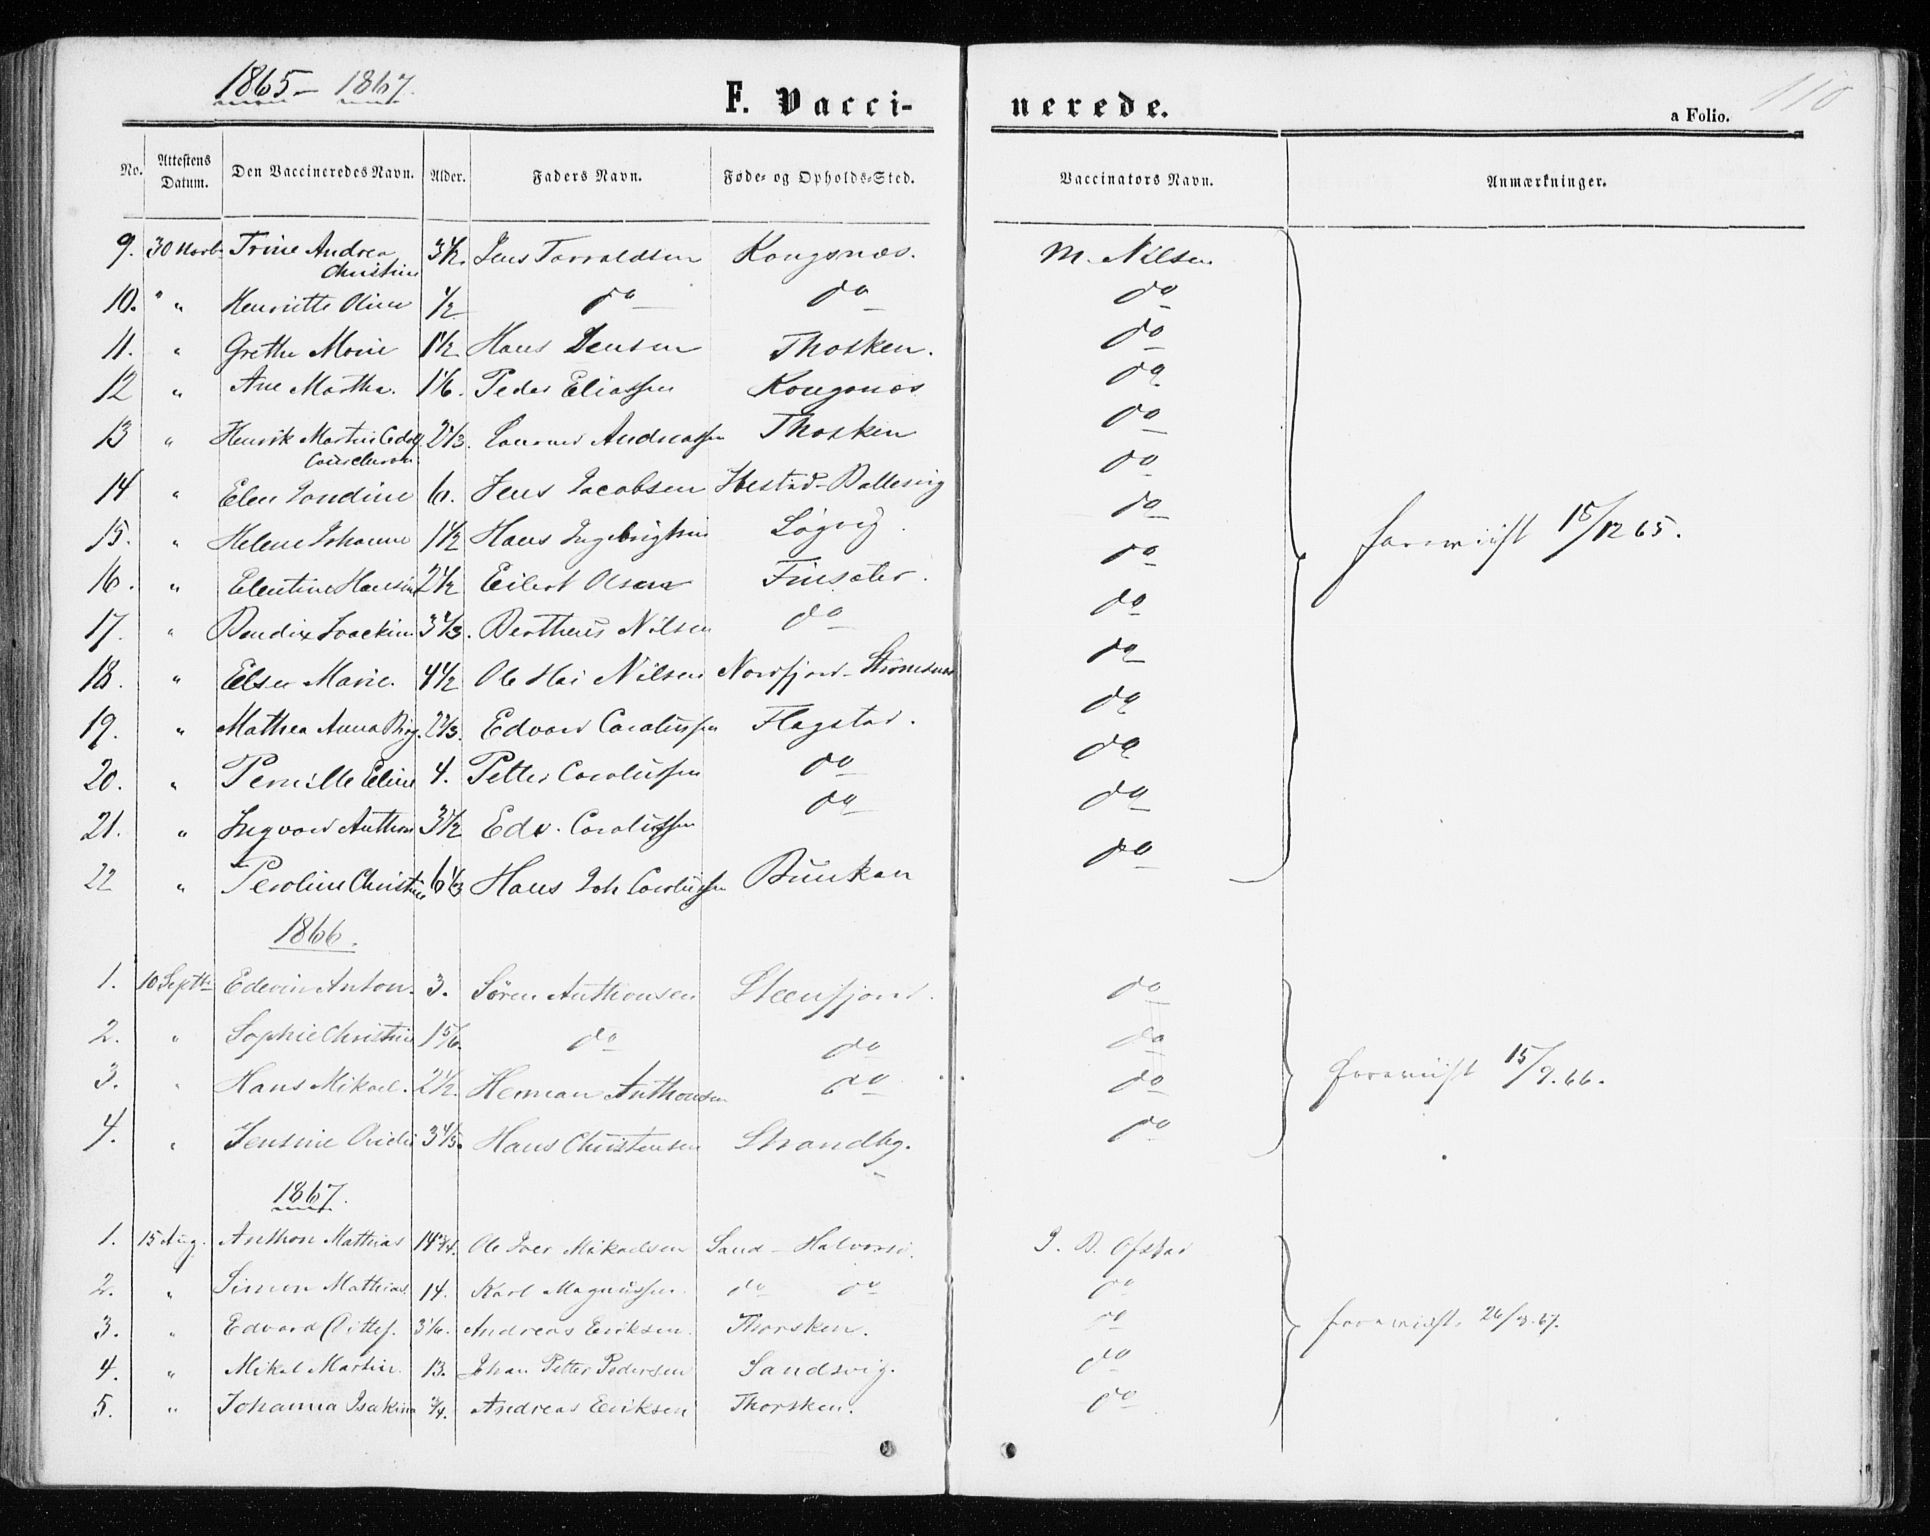 1865 – 1867.
F. Vacci- nerede.
a Folio. 110
No. Attestens Datum. Den Vaccineredes Navn. Alder. Faders Navn. Føde- og Opholds-Sted. Vaccinators Navn. Anmærkninger.
9. 30 Novb. Trine Andrea Christine 3½. Jens Torraldsen Kongsnæs. M. Nilsen
10. " " Henriette Oline ½ do do do
11. " Grethe Marie 1½ Hans Jensen Thosken. do
12 " Ane Martha. 1⅙. Peder Eliassen Kongsnæs do
13 " Henrik Martin 2⅓. Andreassen Thosken do
14 " Elen Jondine 6. Jens Jacobsen Ibestad-Ballesvig do
15. " Helene Johanne 1½ Hans Ingebrigtsen Løgvig. do
16. " Elentine Hansine 2½ Eilert Olsen Finsæter. do
17. " Bendix Joackim 3⅓. Bertheus Nilsen do do
18. " Elser Marie. 4½ Ole Hai Nilsen Nordfjord-Strømsnæs do
19. " Mathea Anna Birg. 2⅔. Edvard Carolussen Flagstad. do
20. " Pernille Eline 4. Petter Carolussen do do
21. " Ingvard Anthon 3½ Edv. Carolussen do do
22 " Peroline Christine 6⅓ Hans Joh Carolussen Bunkan do
forevist 15/12 65.
1866.
1. 10 Septb. Edevin Anton. 3. Søren Anthonsen Steenfjord. do
2. " Sophie Christine 1⅚. do do do
3. " Hans Mikael. 2½. Herman Anthonsen do do
4. " Jensine 3⅘. Hans Christensen Strandby. do
forevist 15/9.66.
1867.
1. 15 Aug. Anthon Mathias 14¾. Ole Iver Mikaelsen Sand – Halvorsv. J. B. Ofstad
2. " Simon Mathias. 14. Karl Magnussen. do do do
3. " Edvard Dittef. 3⅙. Andreas Eriksen. Thorsken. do
4. " Mikal Martin. 13. Johan Petter Pedersen Sandsvig. do
5. " Johanna Isakina ¾. Andreas Eriksen Thorsken. do
forevist. 26/8.67.